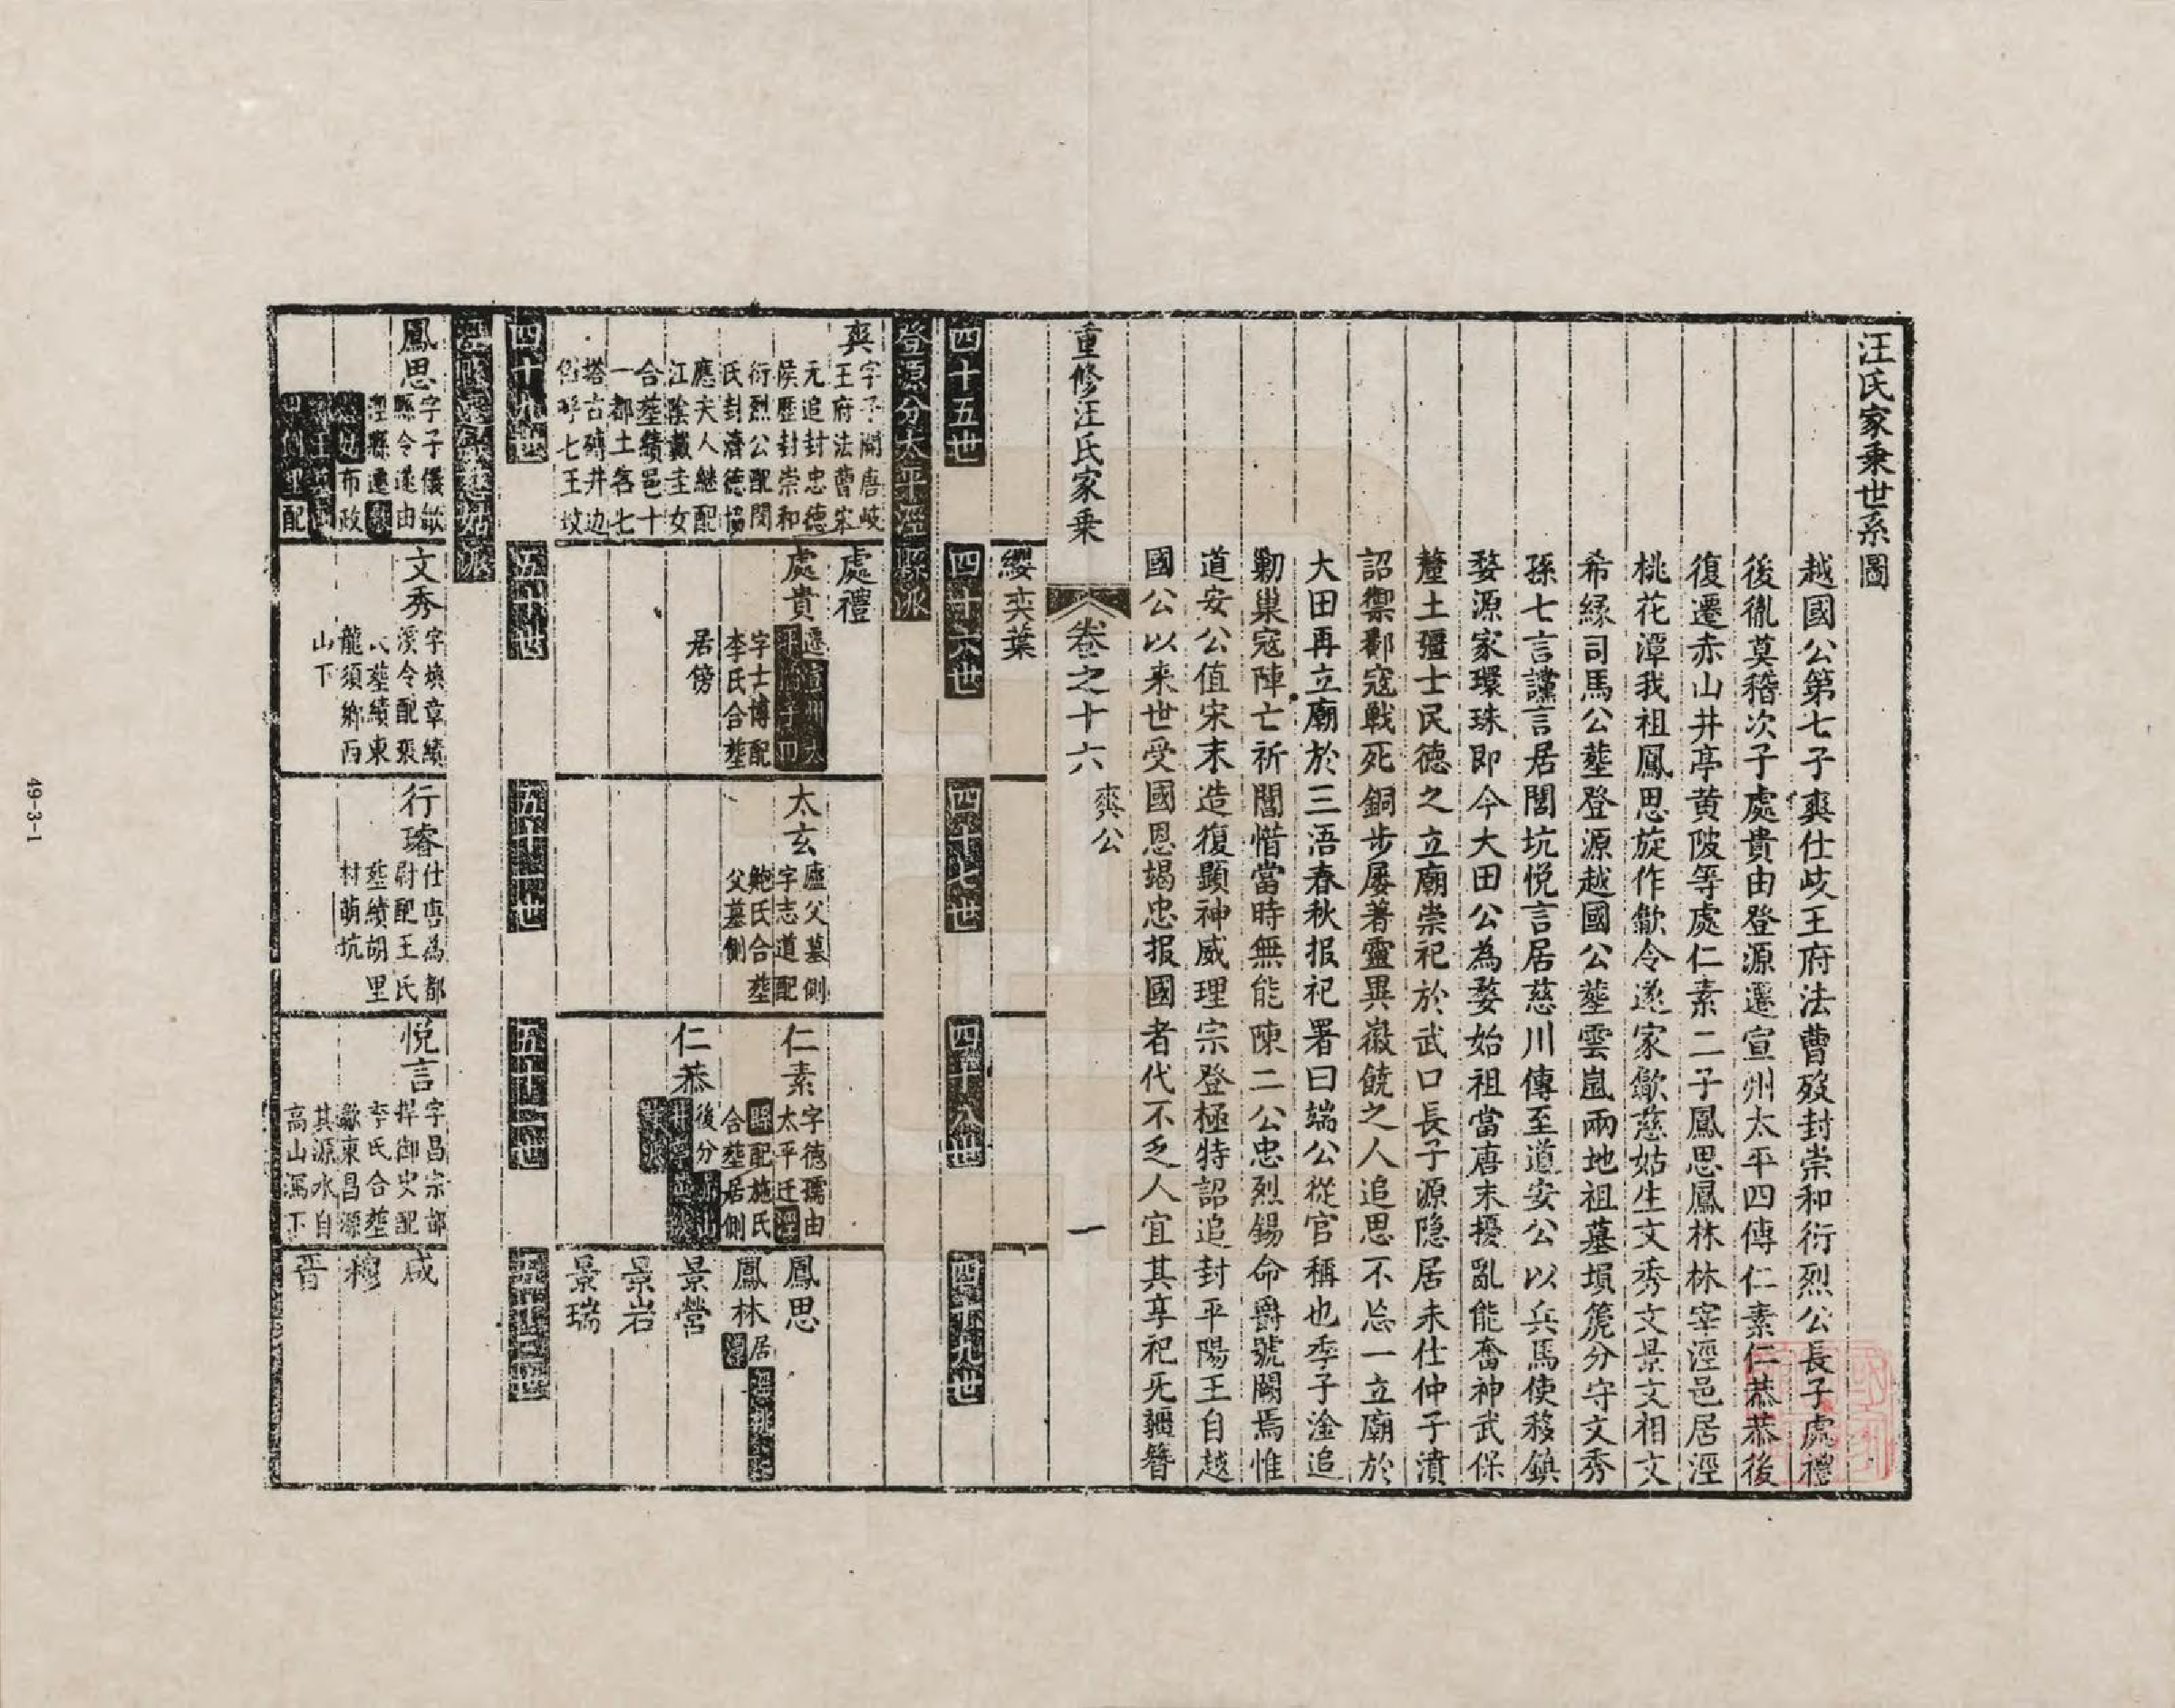 汪氏家乘世系圖
越國公第七子爽仕歧王府法曹歿封崇和衍烈公長子處禮
後胤莫稽次子處貴由登源遷宣州太平四傳仁素仁恭恭後
復遷赤山井亭黄陂等處仁素二子鳳思鳳林林宰涇邑居涇
桃花潭我祖鳳思旋作歙令遂家歙慈姑生文秀文景文相文
希縁司馬公塟登源越國公塟雲嵐兩地祖墓塤箎分守文秀
孫七言讜言居閏坑悦言居慈川傳至道安公以兵馬使移鎮
婺源家環珠即今大田公為婺始祖當唐末擾亂能奮神武保
釐土疆士民德之立廟崇祀於武口長子源隐居未仕仲子濆
詔禦鄱寇戰死銅步屡著靈異徽饒之人追思不忘一立廟於
大田再立廟於三浯春秋报祀署曰端公從官稱也季子淦追
勦巢寇陣亡祈閶惜當時無能陳二公忠烈錫命爵號闕焉惟
道安公值宋末造復顯神威理宗登極特詔追封平陽王自越
國公以来世受國恩竭忠报國者代不乏人宜其享祀无疆簪
重修汪氏家乘 卷之十六 爽公 一
纓奕葉
四十五世 四十六世 四十七世 四十八世 四十九世
登源分太平涇縣派
爽 字子開唐歧
王府法曹宋
元追封忠德
侯歷封崇和
衍烈公配閔
氏封濟德協
應夫人継配
江陰戴圭女
合塟績邑十
一都土名七
塔古磚井边
俗呼七王墳
處禮
處貴 遷宣州太
平
字士博配
李氏合塟
居傍
太玄 廬父墓側
字志道配
鮑氏合塟
父墓側
仁素 字德孺由
太平迁涇
縣配施氏
合塟居側
仁恭 後分赤山
鳳思
鳳林 居涇桃花
潭
景營
景岩
景瑞
四十九世 五十世 五十一世 五十二世 五十三世
鳳思 字子儀歙
縣令遂由
涇縣遷歙
慈姑布政
配
文秀 字煥章績
溪令配張
氏塟績東
龍須鄉西
山下
行璿 仕唐為都
尉配王氏
塟績胡里
村萌坑
悦言 字昌宗部
捍御史配
李氏合塟
歙東昌源
其源水自
高山瀉下
咸
穆
晋
49-3-1